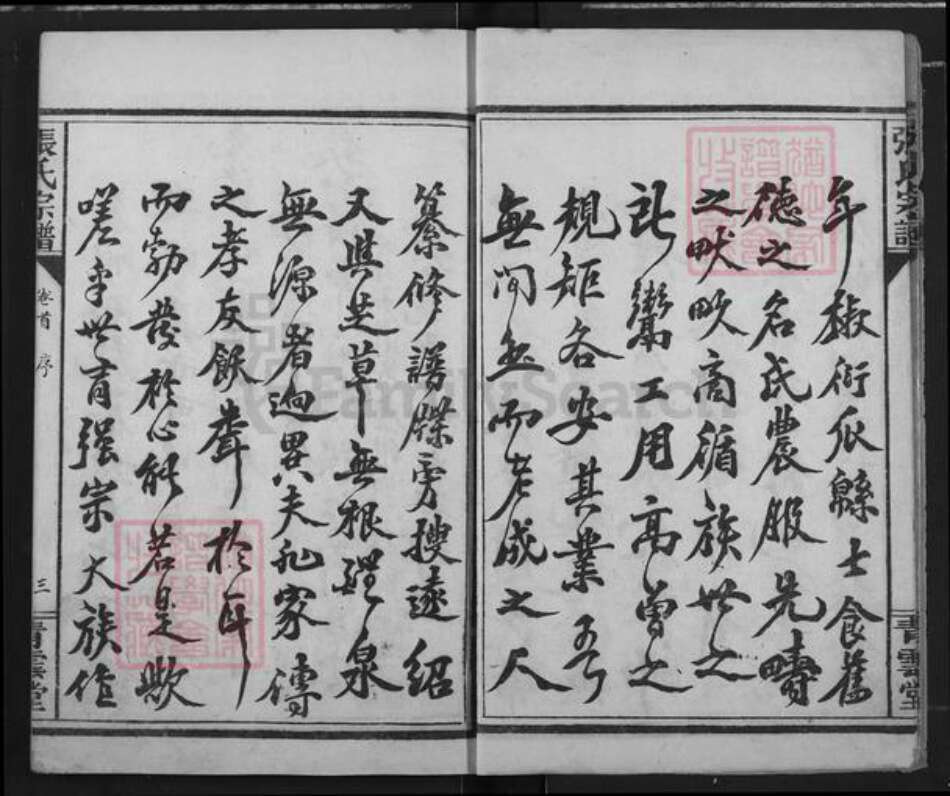 年椒衍瓜緜士食舊
德之名氏農服先疇
之畎畝商循族世之
所鬻工用高曾之
規矩各安其業吾
無間然而老成之人
纂修譜牒旁搜遠紹
又與芝草無根醴泉
無源者迥異夫孔家傳
之孝友飫聲於耳
而勃發於心能若是歟
嗟乎世有強宗大族作
張氏宗譜
卷首 序
三
青雲堂
張氏宗譜
青雲堂
FamilySearch